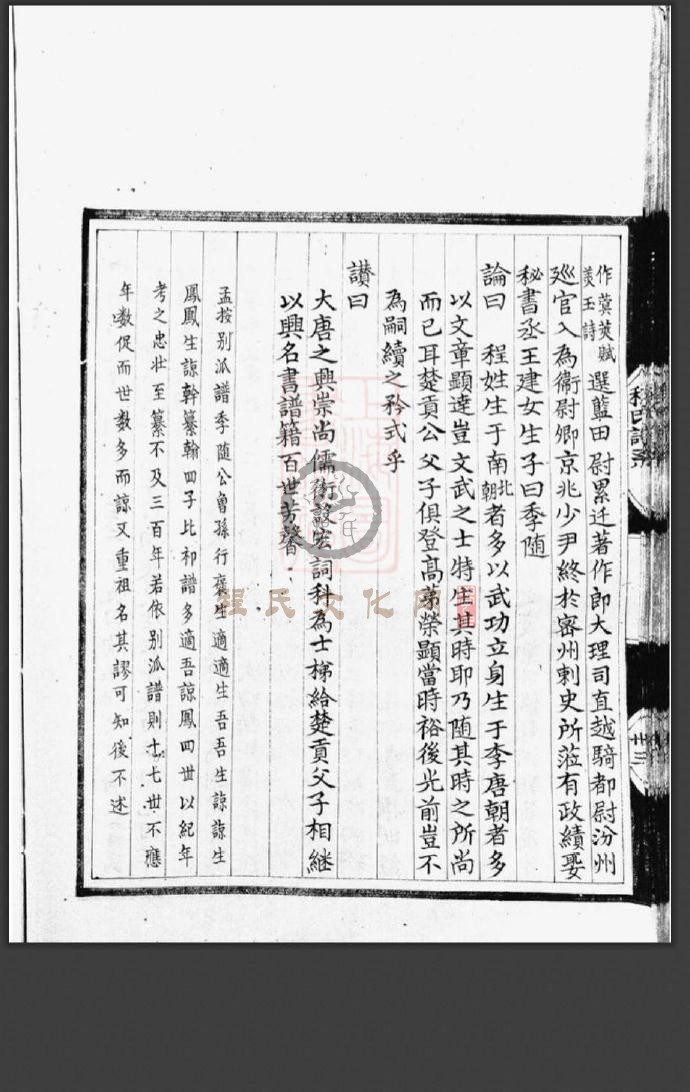 作蓂莢賦
羨玉詩
選藍田尉累迁著作郎大理司直越騎都尉汾州
廵官入為衞尉卿京兆少尹終於密州刺史所蒞有政績娶
秘書丞王建女生子曰季随
論曰　程姓生于南北朝者多以武功立身生于李唐朝者多
以文章顯達豈文武之士特生其時耶乃随其時之所尚
而已耳楚貢公父子俱登高苐榮顯當時裕後光前豈不
為嗣續之矜式乎
讃曰
大唐之興崇尚儒術設宏詞科為士梯給楚貢父子相継
以興名書譜籍百世芳馨
孟按别派譜季随公魯孫行褒生適適生吾吾生諒諒生
鳳鳳生諒幹纂翰四子比祁譜多適吾諒鳳四丗以紀年
考之忠壮至纂不及三百年若依别派譜則十七丗不應
年数促而世数多而諒又重祖名其謬可知後不述
程氏譜系
廿三
程氏文化网